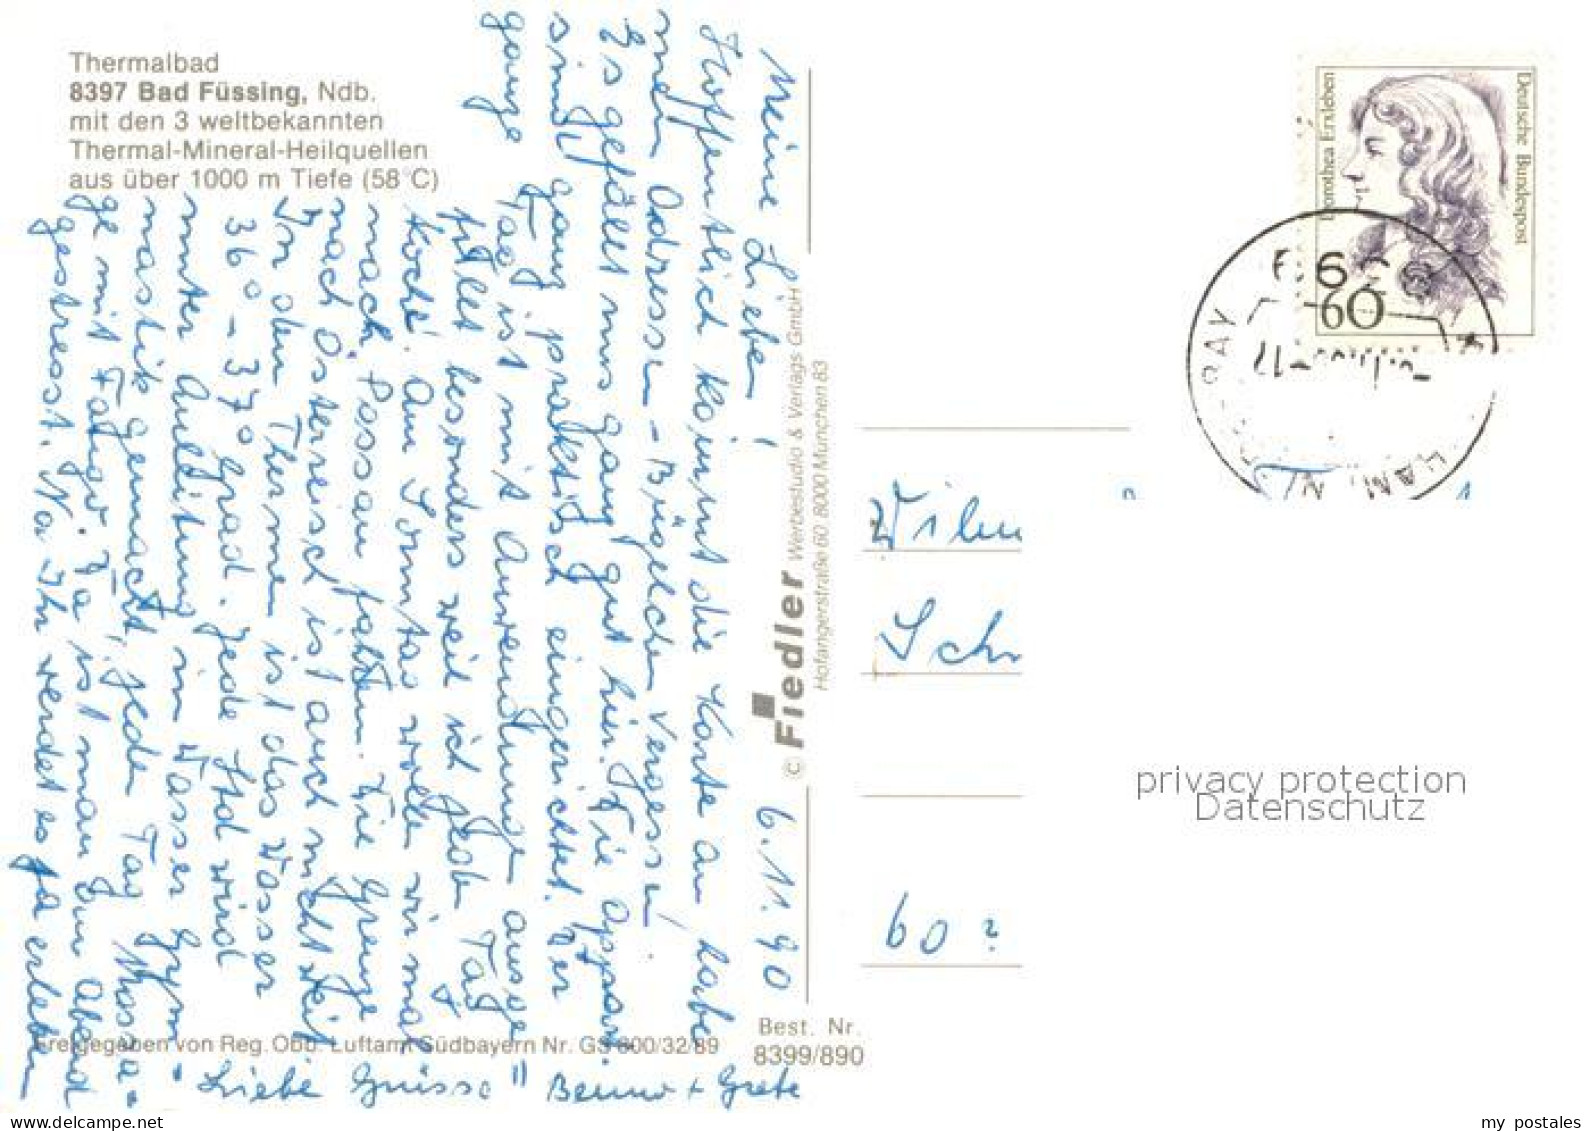 Thermalbad
8397 Bad Füssing, Ndb.
mit den 3 weltbekannten
Thermal-Mineral-Heilquellen
aus über 1000 m Tiefe (58°C)
6.11.90
Meine Lieben!
Hoffentlich kommt die Karte an habe
meinen Adressen-Büchlein vergessen.
Es gefällt uns ganz gut hier. Die Appar.
sind ganz praktisch eingerichtet. Der
ganze Tag ist mit Anwendungen ausge
füllt besonders weil ich jeden Tag
koche. Am Sonntag wollen wir mal
nach Passau fahren. Die Grenze
nach Österreich ist auch nicht weit.
In den Thermen ist das Wasser
36° - 37° Grad. Jede Std wird
unter Anleitung im Wasser Gym
nastik gemacht, jeden Tag Massa-
ge mit Fango. Da ist man am Abend
gestresst. Na Ihr werdet es ja erleben
Liebe Grüsse Benno + Grete
© Fiedler Werbestudio & Verlags GmbH
Hofangerstraße 60 8000 München 83
Freigegeben von Reg. Obb. Luftamt Südbayern Nr. GS 300/32/89
Best. Nr.
8399/890
Deutsche Bundespost
Dorothea Erxleben
60
Wilm
Schr
60
privacy protection
Datenschutz
my postales